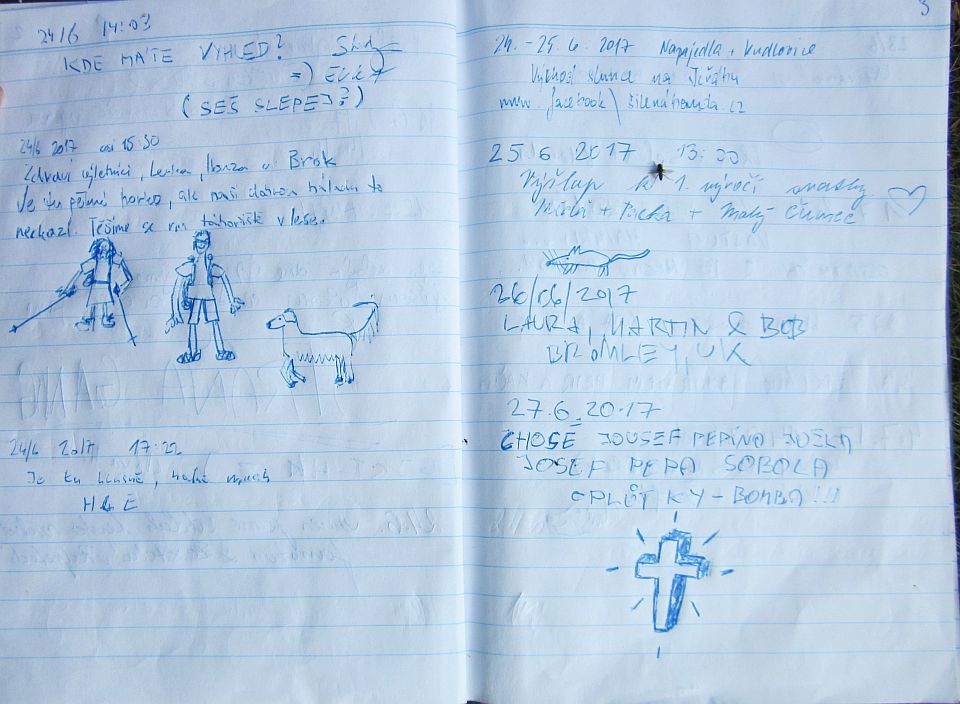 24/6 14:03
KDE MÁTE VÝHLED?
(SEŠ SLEPEJ?)
24/6 2017 asi 15:30
Zdraví výletníci, Lenka, Honza a Brok
Je tu pěkné horko, ale naši dobrou náladu to
nezkazí. Těšíme se na tábořiště v lese.
24/6 2017 17:22
Je tu krásně, hodně
H & E
3
24.-25.6. 2017 Napajedla + Kudlovice
Východ slunce na
www.facebook\
25 6 2017 13:00
Výšlap k 1. výročí svatby
+ + Malý Čumec
26/06/2017
LAURA, MARTIN & BOB
BROMLEY, UK
27.6.2017
CHOSÉ JOUSEF PEPÍNO
JOSEF PEPA SOBOLA
OPLŮTKY - BOMBA!!!